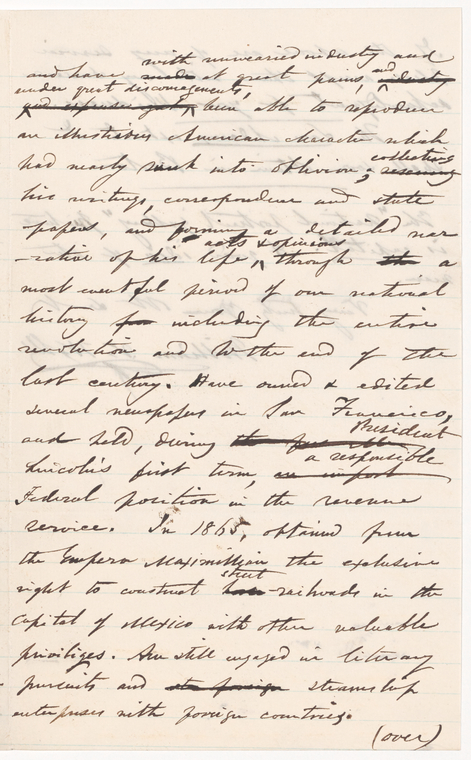 with unwearied industry and
and have made at great pains, and industy
under great discouragements,
and expense been able to reproduce
an illustrious American character which
had nearly sunk into oblivion; collecting rescuing
his writings, correspondence and state
papers, and forming a detailed nar
-rative of his life, acts & opinions through the a
most eventful period of our national
history for including the entire
revolution and to the end of the
last century. Have owned & edited
several newspapers in San Francisco,
and held, during the President
Lincoln's first term, an import a responsible
Federal position in the revenue
service. In 1865, obtained from
the Emperor Maximillian the exclusive
right to construct street railroads in the
capital of Mexico with other valuable
priviliges. Am still engaged in literary
pursuits and steamship
enterprises with foreign countries.
(over)